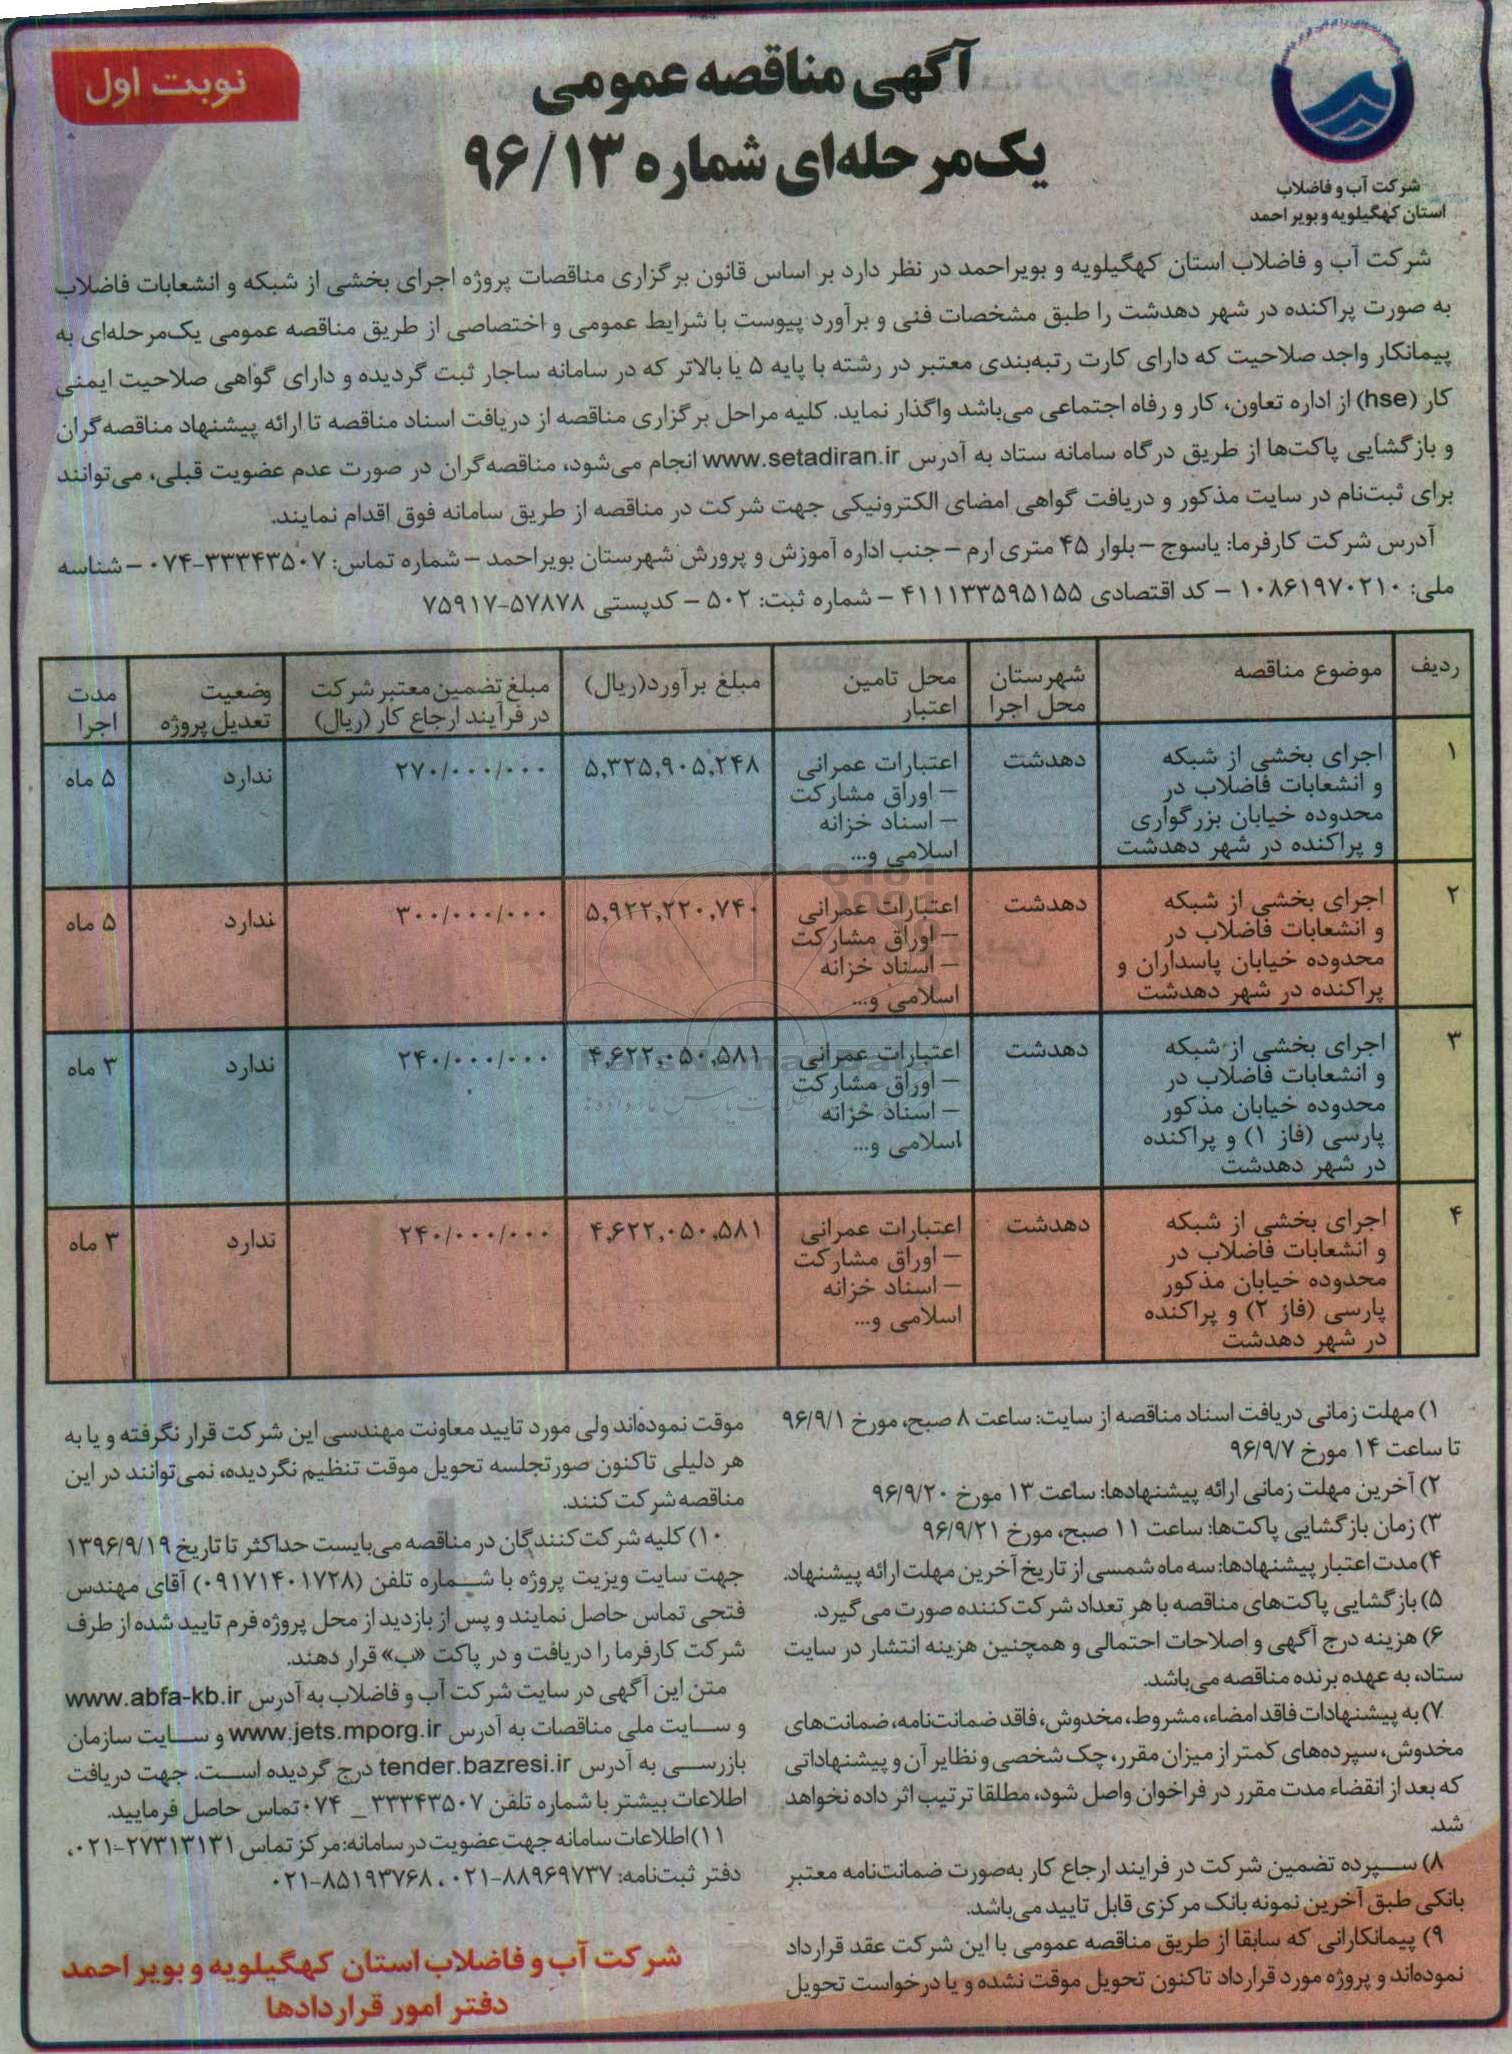 نوبت اول
آگهی مناقصه عمومی
یک‌مرحله‌ای شماره ۹۶/۱۳
شرکت آب و فاضلاب
استان کهگیلویه و بویراحمد
شرکت آب و فاضلاب استان کهگیلویه و بویراحمد در نظر دارد بر اساس قانون برگزاری مناقصات پروژه اجرای بخشی از شبکه و انشعابات فاضلاب
به صورت پراکنده در شهر دهدشت را طبق مشخصات فنی و برآورد پیوست با شرایط عمومی و اختصاصی از طریق مناقصه عمومی یک‌مرحله‌ای به
پیمانکار واجد صلاحیت که دارای کارت رتبه‌بندی معتبر در رشته با پایه ۵ یا بالاتر که در سامانه ساجار ثبت گردیده و دارای گواهی صلاحیت ایمنی
کار (hse) از اداره تعاون، کار و رفاه اجتماعی می‌باشد واگذار نماید. کلیه مراحل برگزاری مناقصه از دریافت اسناد مناقصه تا ارائه پیشنهاد مناقصه‌گران
و بازگشایی پاکت‌ها از طریق درگاه سامانه ستاد به آدرس www.setadiran.ir انجام می‌شود، مناقصه‌گران در صورت عدم عضویت قبلی، می‌توانند
برای ثبت‌نام در سایت مذکور و دریافت گواهی امضای الکترونیکی جهت شرکت در مناقصه از طریق سامانه فوق اقدام نمایند.
آدرس شرکت کارفرما: یاسوج – بلوار ۴۵ متری ارم – جنب اداره آموزش و پرورش شهرستان بویراحمد – شماره تماس: ۳۳۳۴۳۵۰۷-۰۷۴ – شناسه
ملی: ۱۰۸۶۱۹۷۰۲۱۰ – کد اقتصادی ۴۱۱۱۳۳۵۹۵۱۵۵ – شماره ثبت: ۵۰۲ – کدپستی ۵۷۸۷۸-۷۵۹۱۷
ردیف
موضوع مناقصه
شهرستان
محل اجرا
محل تامین
اعتبار
مبلغ برآورد(ریال)
مبلغ تضمین معتبر شرکت
در فرآیند ارجاع کار (ریال)
وضعیت
تعدیل پروژه
مدت
اجرا
۱
اجرای بخشی از شبکه
و انشعابات فاضلاب در
محدوده خیابان بزرگواری
و پراکنده در شهر دهدشت
دهدشت
اعتبارات عمرانی
– اوراق مشارکت
– اسناد خزانه
اسلامی و...
۵,۳۲۵,۹۰۵,۲۴۸
۲۷۰/۰۰۰/۰۰۰
ندارد
۵ ماه
۲
اجرای بخشی از شبکه
و انشعابات فاضلاب در
محدوده خیابان پاسداران و
پراکنده در شهر دهدشت
دهدشت
اعتبارات عمرانی
– اوراق مشارکت
– اسناد خزانه
اسلامی و...
۵,۹۲۲,۲۲۰,۷۴۰
۳۰۰/۰۰۰/۰۰۰
ندارد
۵ ماه
۳
اجرای بخشی از شبکه
و انشعابات فاضلاب در
محدوده خیابان مذکور
پارسی (فاز ۱) و پراکنده
در شهر دهدشت
دهدشت
اعتبارات عمرانی
– اوراق مشارکت
– اسناد خزانه
اسلامی و...
۴,۶۲۲,۰۵۰,۵۸۱
۲۴۰/۰۰۰/۰۰۰
ندارد
۳ ماه
۴
اجرای بخشی از شبکه
و انشعابات فاضلاب در
محدوده خیابان مذکور
پارسی (فاز ۲) و پراکنده
در شهر دهدشت
دهدشت
اعتبارات عمرانی
– اوراق مشارکت
– اسناد خزانه
اسلامی و...
۴,۶۲۲,۰۵۰,۵۸۱
۲۴۰/۰۰۰/۰۰۰
ندارد
۳ ماه
۱) مهلت زمانی دریافت اسناد مناقصه از سایت: ساعت ۸ صبح، مورخ ۹۶/۹/۱
تا ساعت ۱۴ مورخ ۹۶/۹/۷
۲) آخرین مهلت زمانی ارائه پیشنهادها: ساعت ۱۳ مورخ ۹۶/۹/۲۰
۳) زمان بازگشایی پاکت‌ها: ساعت ۱۱ صبح، مورخ ۹۶/۹/۲۱
۴) مدت اعتبار پیشنهادها: سه ماه شمسی از تاریخ آخرین مهلت ارائه پیشنهاد.
۵) بازگشایی پاکت‌های مناقصه با هر تعداد شرکت‌کننده صورت می‌گیرد.
۶) هزینه درج آگهی و اصلاحات احتمالی و همچنین هزینه انتشار در سایت
ستاد، به عهده برنده مناقصه می‌باشد.
۷) به پیشنهادات فاقد امضاء، مشروط، مخدوش، فاقد ضمانت‌نامه، ضمانت‌های
مخدوش، سپرده‌های کمتر از میزان مقرر، چک شخصی و نظایر آن و پیشنهاداتی
که بعد از انقضاء مدت مقرر در فراخوان واصل شود، مطلقا ترتیب اثر داده نخواهد
شد.
۸) سپرده تضمین شرکت در فرایند ارجاع کار به‌صورت ضمانت‌نامه معتبر
بانکی طبق آخرین نمونه بانک مرکزی قابل تایید می‌باشد.
۹) پیمانکارانی که سابقا از طریق مناقصه عمومی با این شرکت عقد قرارداد
نموده‌اند و پروژه مورد قرارداد تاکنون تحویل موقت نشده و یا درخواست تحویل
موقت نموده‌اند ولی مورد تایید معاونت مهندسی این شرکت قرار نگرفته و یا به
هر دلیلی تاکنون صورتجلسه تحویل موقت تنظیم نگردیده، نمی‌توانند در این
مناقصه شرکت کنند.
۱۰) کلیه شرکت‌کنندگان در مناقصه می‌بایست حداکثر تا تاریخ ۱۳۹۶/۹/۱۹
جهت سایت ویزیت پروژه با شماره تلفن (۰۹۱۷۱۴۰۱۷۲۸) آقای مهندس
فتحی تماس حاصل نمایند و پس از بازدید از محل پروژه فرم تایید شده از طرف
شرکت کارفرما را دریافت و در پاکت «ب» قرار دهند.
متن این آگهی در سایت شرکت آب و فاضلاب به آدرس www.abfa-kb.ir
و سایت ملی مناقصات به آدرس www.jets.mporg.ir و سایت سازمان
بازرسی به آدرس tender.bazresi.ir درج گردیده است. جهت دریافت
اطلاعات بیشتر با شماره تلفن ۳۳۳۴۳۵۰۷ _ ۰۷۴ تماس حاصل فرمایید.
۱۱) اطلاعات سامانه جهت عضویت در سامانه: مرکز تماس ۲۷۳۱۳۱۳۱-۰۲۱،
دفتر ثبت‌نامه: ۸۸۹۶۹۷۳۷-۰۲۱ ، ۸۵۱۹۳۷۶۸-۰۲۱
شرکت آب و فاضلاب استان کهگیلویه و بویراحمد
دفتر امور قراردادها